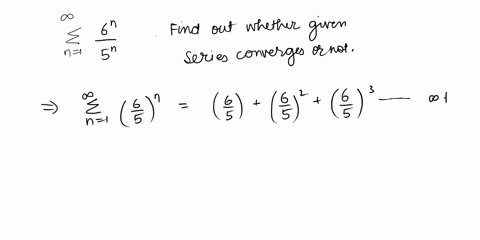 ∞ Σ n=1 6^n/5^n . Find out whether given
series converges or not.
⇒ ∞ Σ n=1 (6/5)^n = (6/5) + (6/5)^2 + (6/5)^3 —— ∞